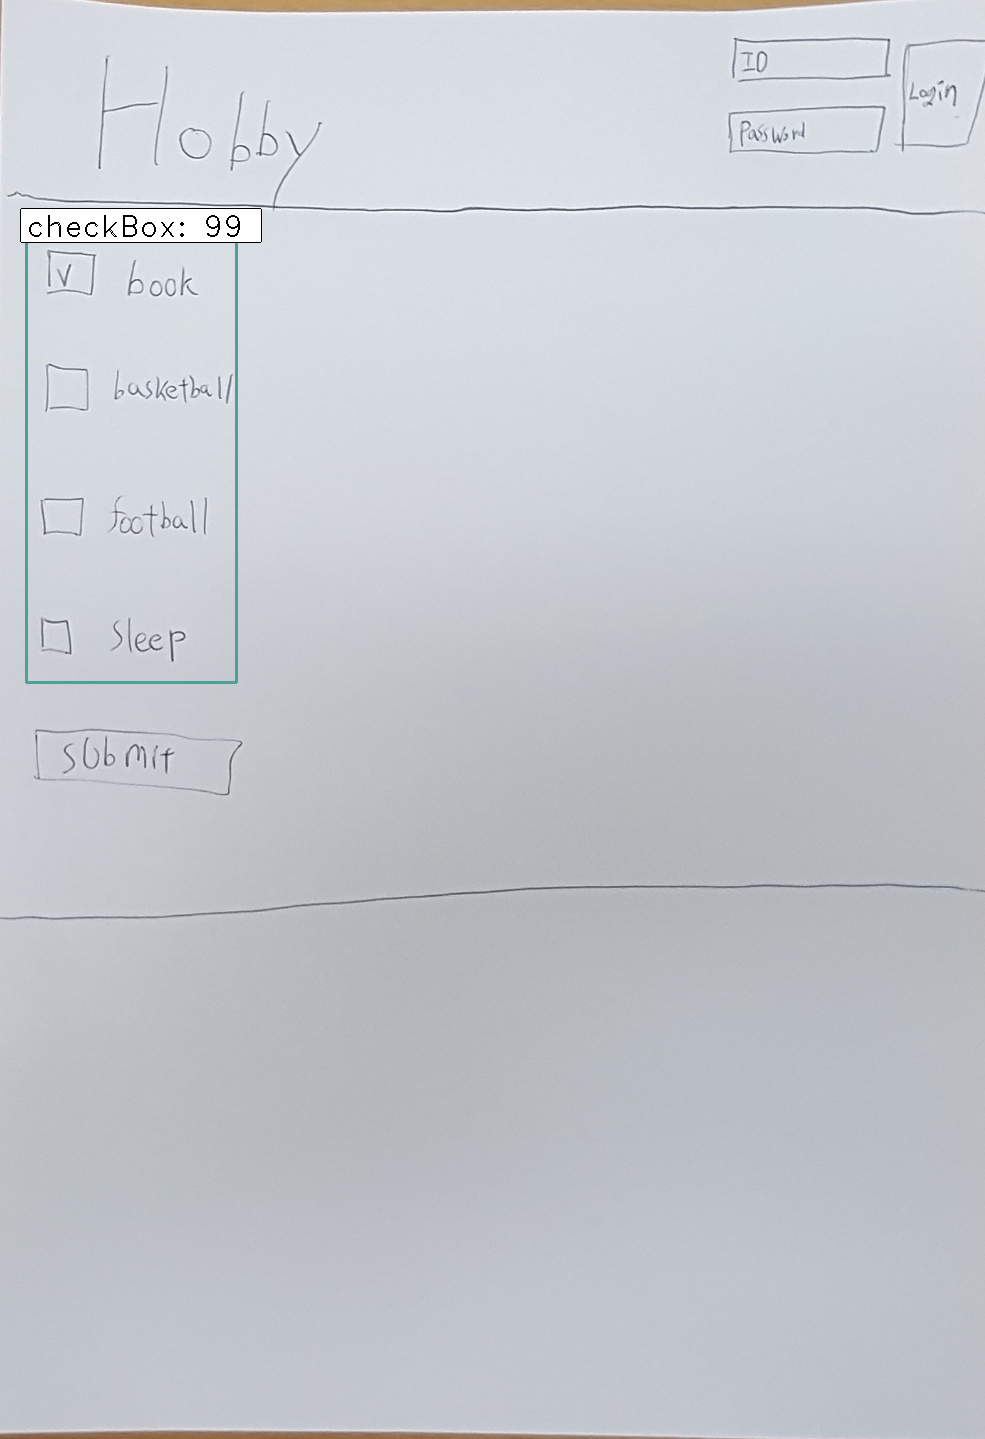 Hobby
ID
Password
Login
checkBox: 99
book
basketball
football
Sleep
SUbmit